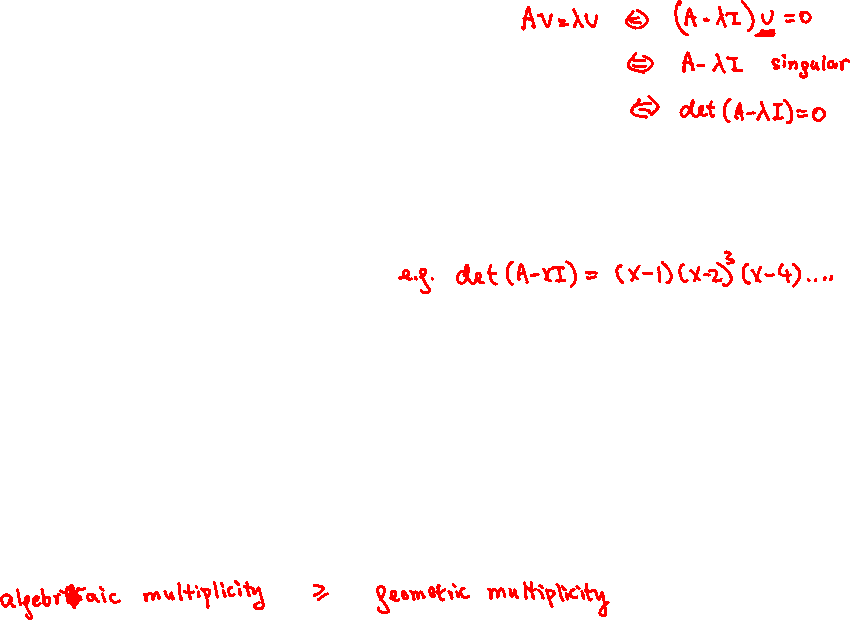 Av=λv ⇔ (A-λI)v=0
⇔ A-λI singular
⇔ det(A-λI)=0
e.g. det(A-xI) = (x-1)(x-2)³(x-4)....
algebraic multiplicity ≥ geometric multiplicity